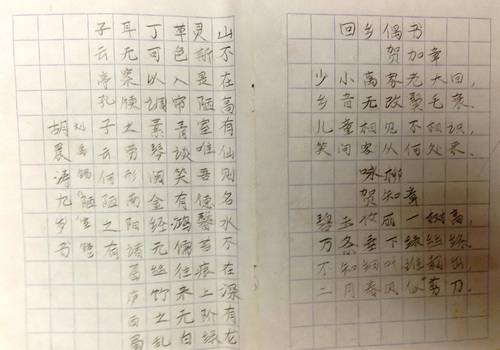 回乡偶书
贺加章
少小离家老大回，
乡音无改鬓毛衰。
儿童相见不相识，
笑问客从何处来。
咏柳
贺知章
碧玉妆成一树高，
万条垂下绿丝绦。
不知细叶谁裁出，
二月春风似剪刀。
山不在高有仙则名水不在深有龙
灵斯是陋室唯吾德馨苔痕上阶绿
草色入帘青谈笑有鸿儒往来无白
丁可以调素琴阅金经无丝竹之乱
耳无案牍之劳形南阳诸葛庐西蜀
子云亭孔子云何陋之有
刘禹锡陋室铭
胡晨涛九岁书